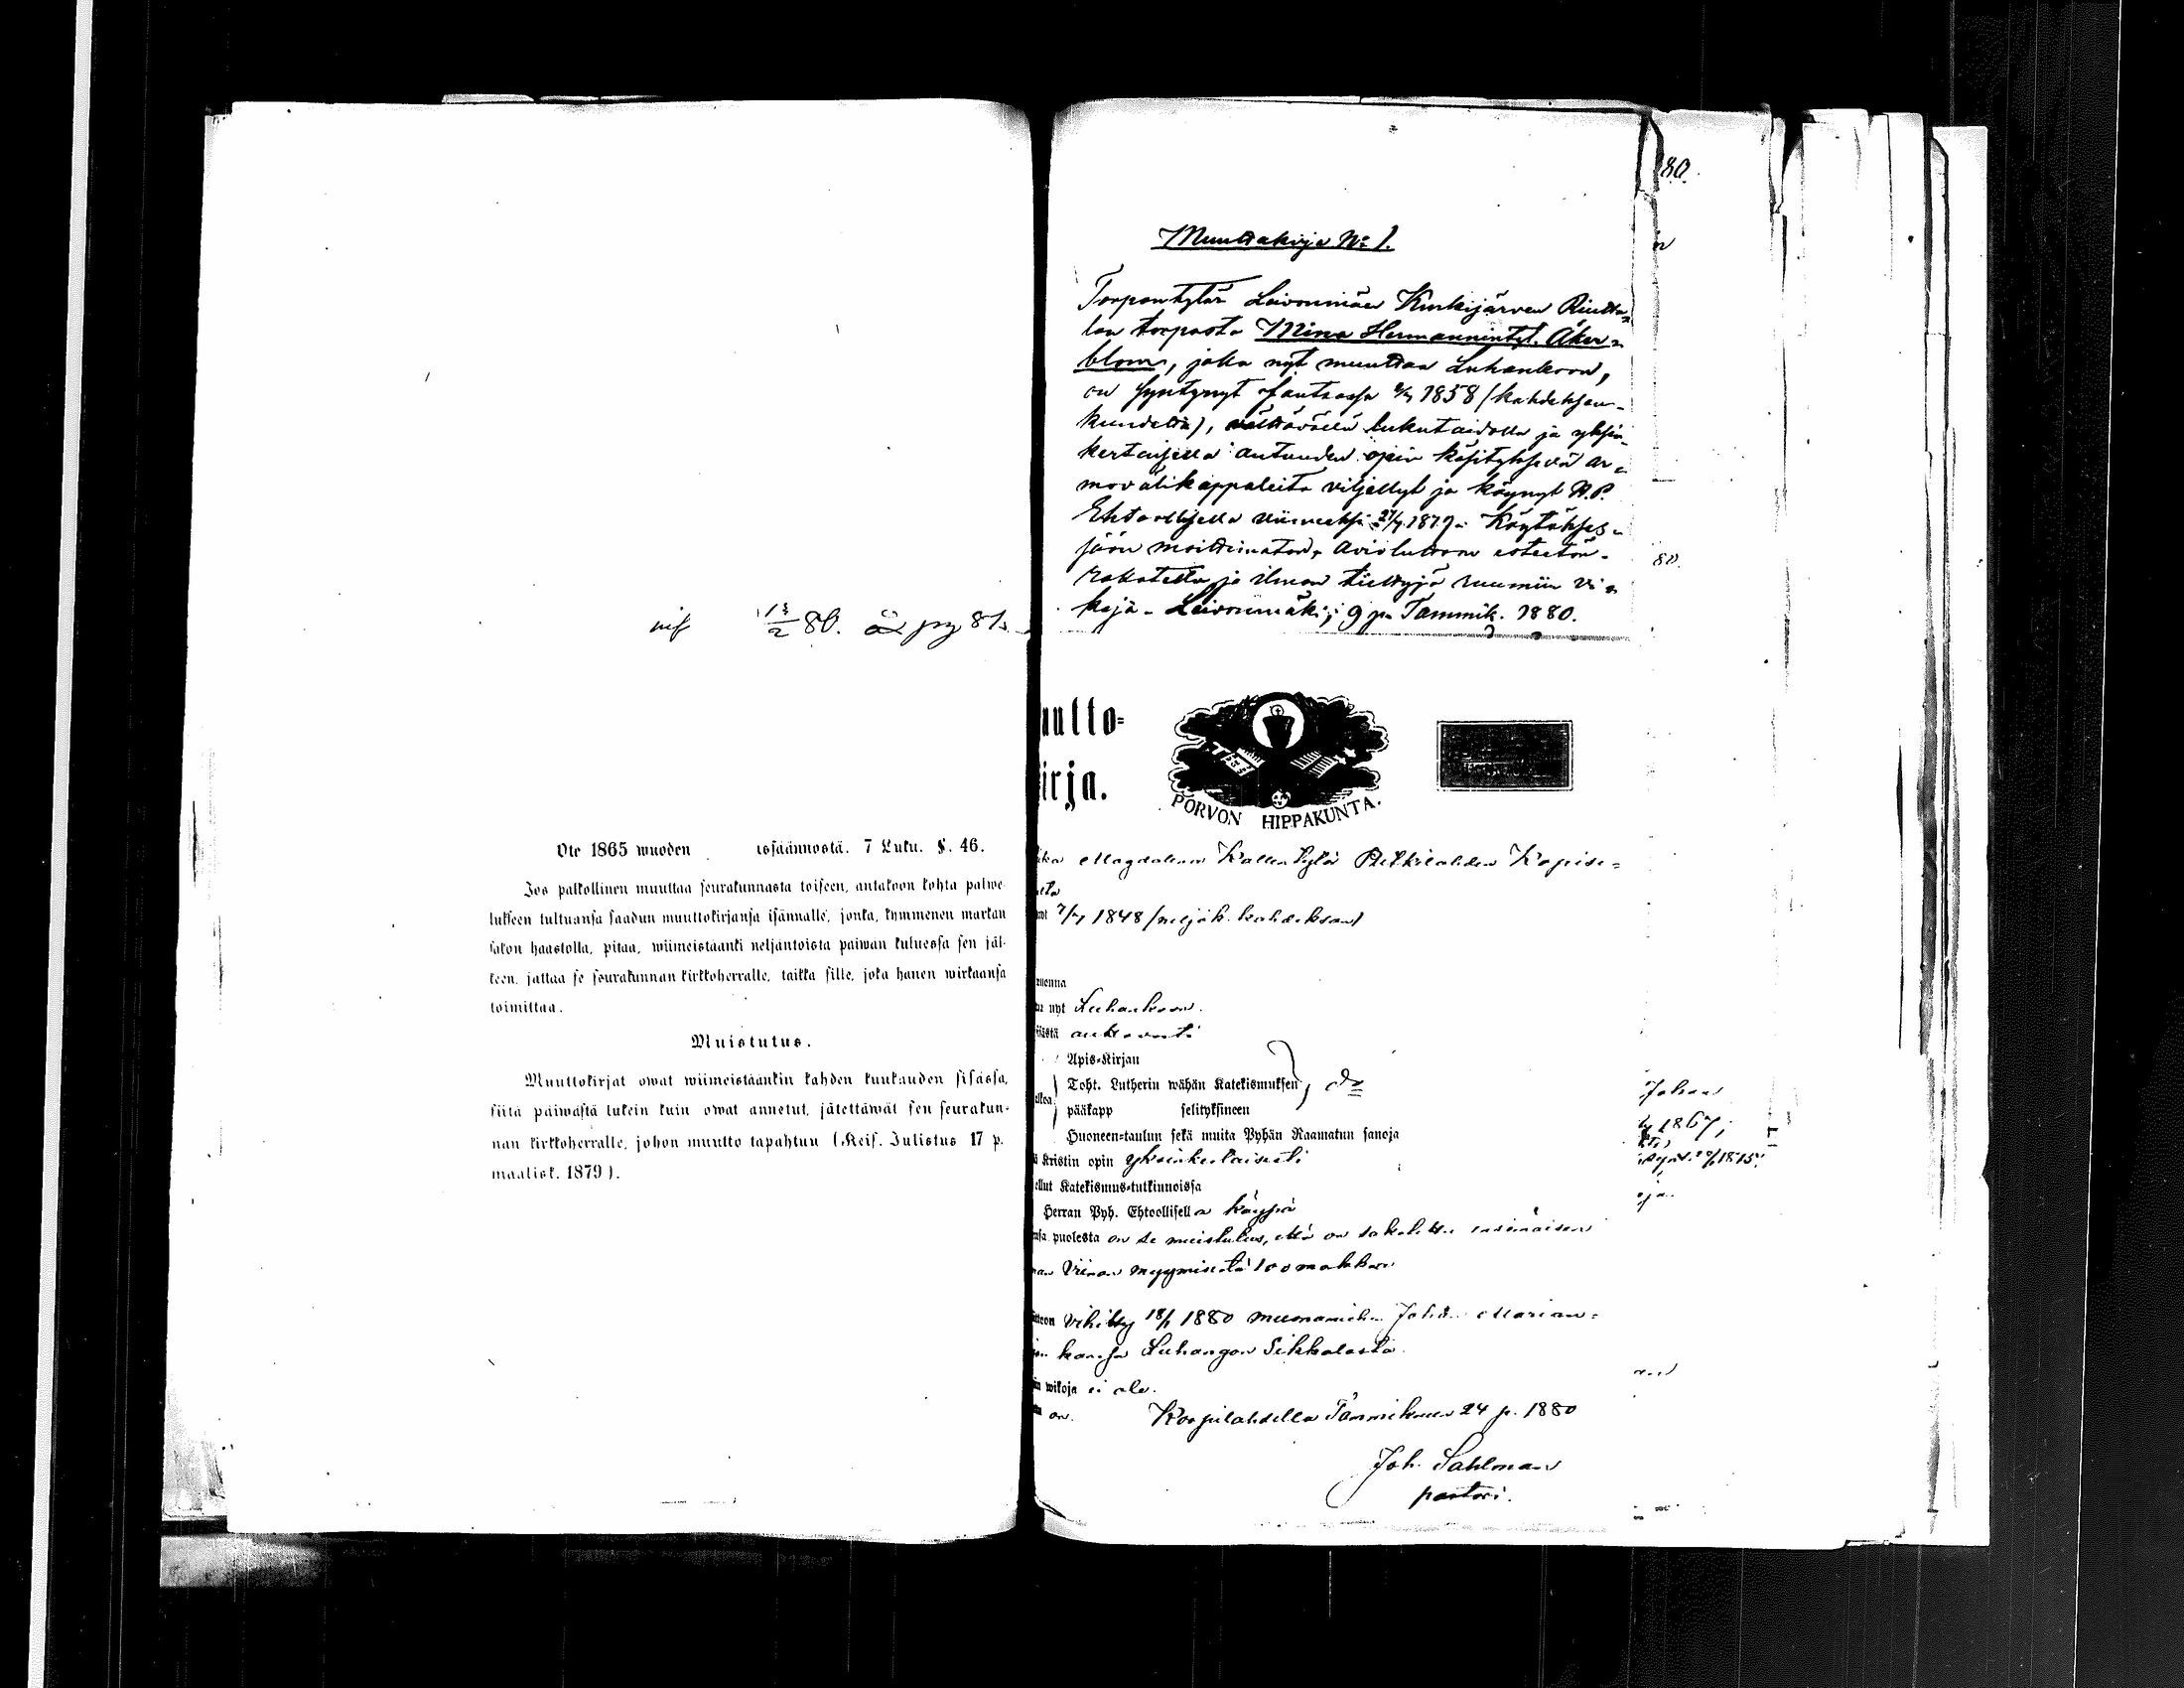 13/2 80. py 81.
Ote 1865 wuoden issäännöstä. 7 Luku. §. 46.
Jos palkollinen muuttaa seurakunnasta toiseen, antakoon kohta palwe-
lukseen tultuansa saadun muuttokirjansa isännalle, jonka, kymmenen markan
sakon haastolla, pitaa, wiimeistaanki neljantoista paiwan kuluessa sen jäl-
keen, jattaa se seurakunnan kirkkoherralle, taikka sille, joka hanen wirkaansa
toimittaa.
Muistutus.
Muuttokirjat owat wiimeistäankin kahden kuukauden sisässa,
siita päiwästä lukein kuin owat annetut, jätettäwät sen seurakun-
nan kirkkoherralle, johon muutto tapahtuu (Keis. Julistus 17 p.
maalisk. 1879).
Muuttokirja No 1.
Torpantytär Leivonmäen Kurkijärven Riutta-
lan torpasta Mina Hermannintyt. Åker-
blom, joka nyt muuttaa Luhankoon,
on syntynyt Joutsassa 1858 (kahdeksan-
kundetta), välttävällä lukutaidolla ja yksin-
kertaisella autuuden opin käsityksellä ar-
movälikappaleita viljellyt ja käynyt H.P.
Ehtoollisella viimeksi 27/7 1879. Käytökses-
sään moitteeton, avioliittoon esteetön.
Rokotettu ja ilman tiettyjä ruumiin vi-
koja. Leivonmäki, 9 p. Tammik. 1880.
80.
uutto-
irja.
PORVON HIPPAKUNTA.
Magdalena Kallen tytär Petkelahden
7/7 1848 (neljäk. kahdeksan)
nyt Luhankoon.
äästä auttavasti
Apis-Kirjan
Toht. Lutherin wähän Katekismuksen
pääkapp selityksineen
Huoneen-taulun sekä muita Pyhän Raamatun sanoja
Kristin opin yksinkertaisesti
ellut Katekismus-tutkinnoissa
Herran Pyh. Ehtoollisella käypä
puolesta on se muistutus, että on sakotettu ensimäisen
Viinan myymisestä 100 markkaan
Vihitty 18/1 1880 Marian-
kanssa Luhangon Sikkalasta
wikoja ei ole.
on. Korpilahdella Tammikuun 24 p. 1880
Joh. Sahlman
pastori.
80.
Johan
1867;